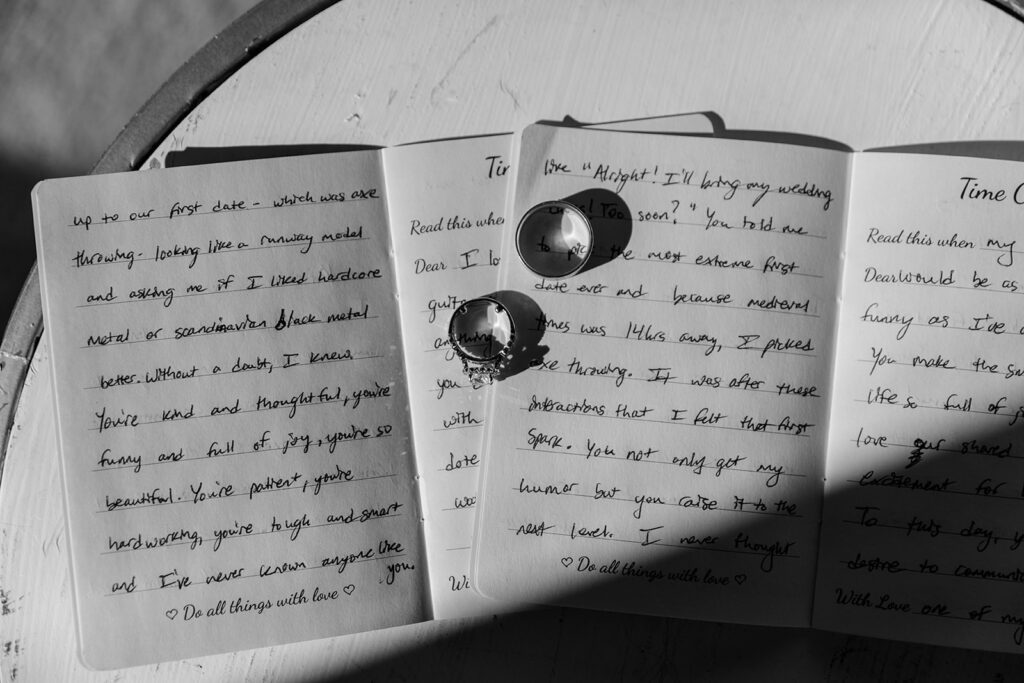 up to our first date - which was axe
throwing - looking like a runway model
and asking me if I liked hardcore
metal or scandinavian black metal
better. Without a doubt, I knew.
You're kind and thoughtful, you're
funny and full of joy, you're so
beautiful. You're patient, you're
hardworking, you're tough and smart
and I've never known anyone like
you.
♡ Do all things with love ♡
Read this when
Dear I
you
with
like "Alright! I'll bring my wedding
Too soon?" You told me
to pick the most extreme first
date ever and because medieval
times was 14hrs away, I picked
axe throwing. It was after these
intractions that I felt that first
spark. You not only get my
humor but you raise it to the
next level. I never thought
♡ Do all things with love ♡
Time
Read this when my
Dear would be as
funny as I've
You make the
life so full of
love our shared
excitement for
To this day,
desire to
With Love one of my